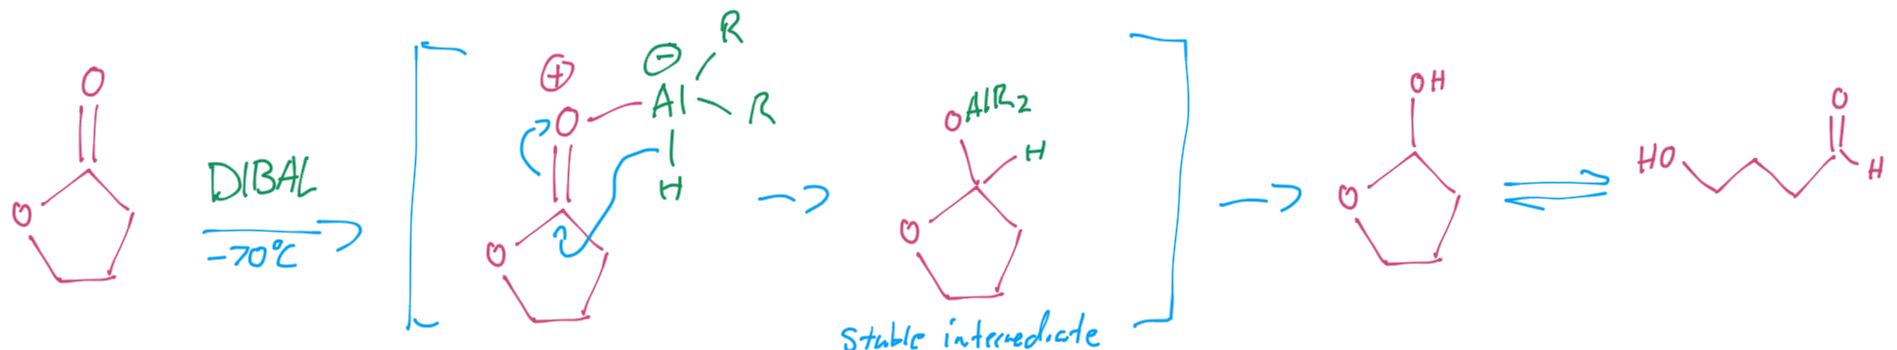 O
O
DIBAL
-70°C
⊕
O
⊖
Al
R
R
H
O
OAlR2
H
O
stable intermediate
OH
O
HO
O
H